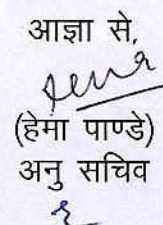 आज्ञा से,
(हेमा पाण्डे)
अनु सचिव